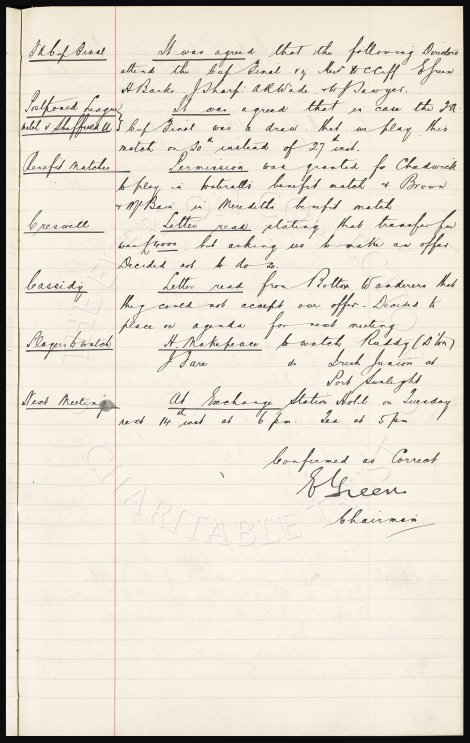 F A Cup Final It was agreed that the following Directors
attend the Cup Final Messrs E Green
H Banks J Sharp A R Wade J Sawyer.
Postponed League It was agreed that in case the F A
match v Sheffield U } Cup Final was a draw that we play this
match on 30th instead of 27th inst.
Benefit Matches Permission was granted for Chadwick
to play in benefit match & Brown
& McBain in Merediths benefit match
Creswell Letter read stating that transfer fee
was £4000 but asking us to make an offer.
Decided not to do so.
Cassidy Letter read from Bolton Wanderers that
they could not accept our offer. Decided to
place on agenda for next meeting
Players to watch H Makepeace to watch Ruddy (D'ton)
J Pare do Irish Juniors at
Port Sunlight
Next Meeting At Exchange Station Hotel on Tuesday
next 14th inst at 6 pm. Tea at 5 pm
Confirmed as Correct
E Green
Chairman
CHARITABLE